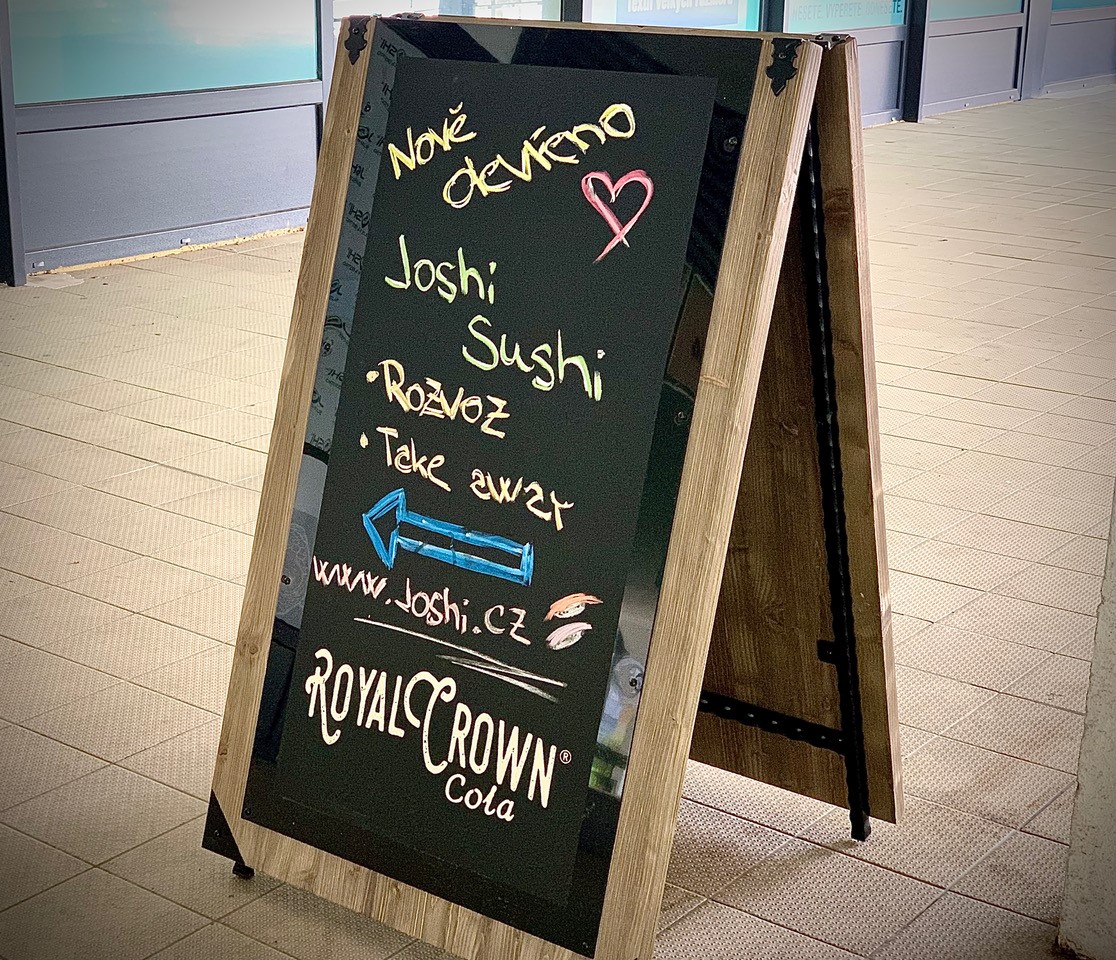 Nově
otevřeno
Joshi
Sushi
• Rozvoz
• Take away
www.Joshi.cz
ROYAL CROWN®
Cola